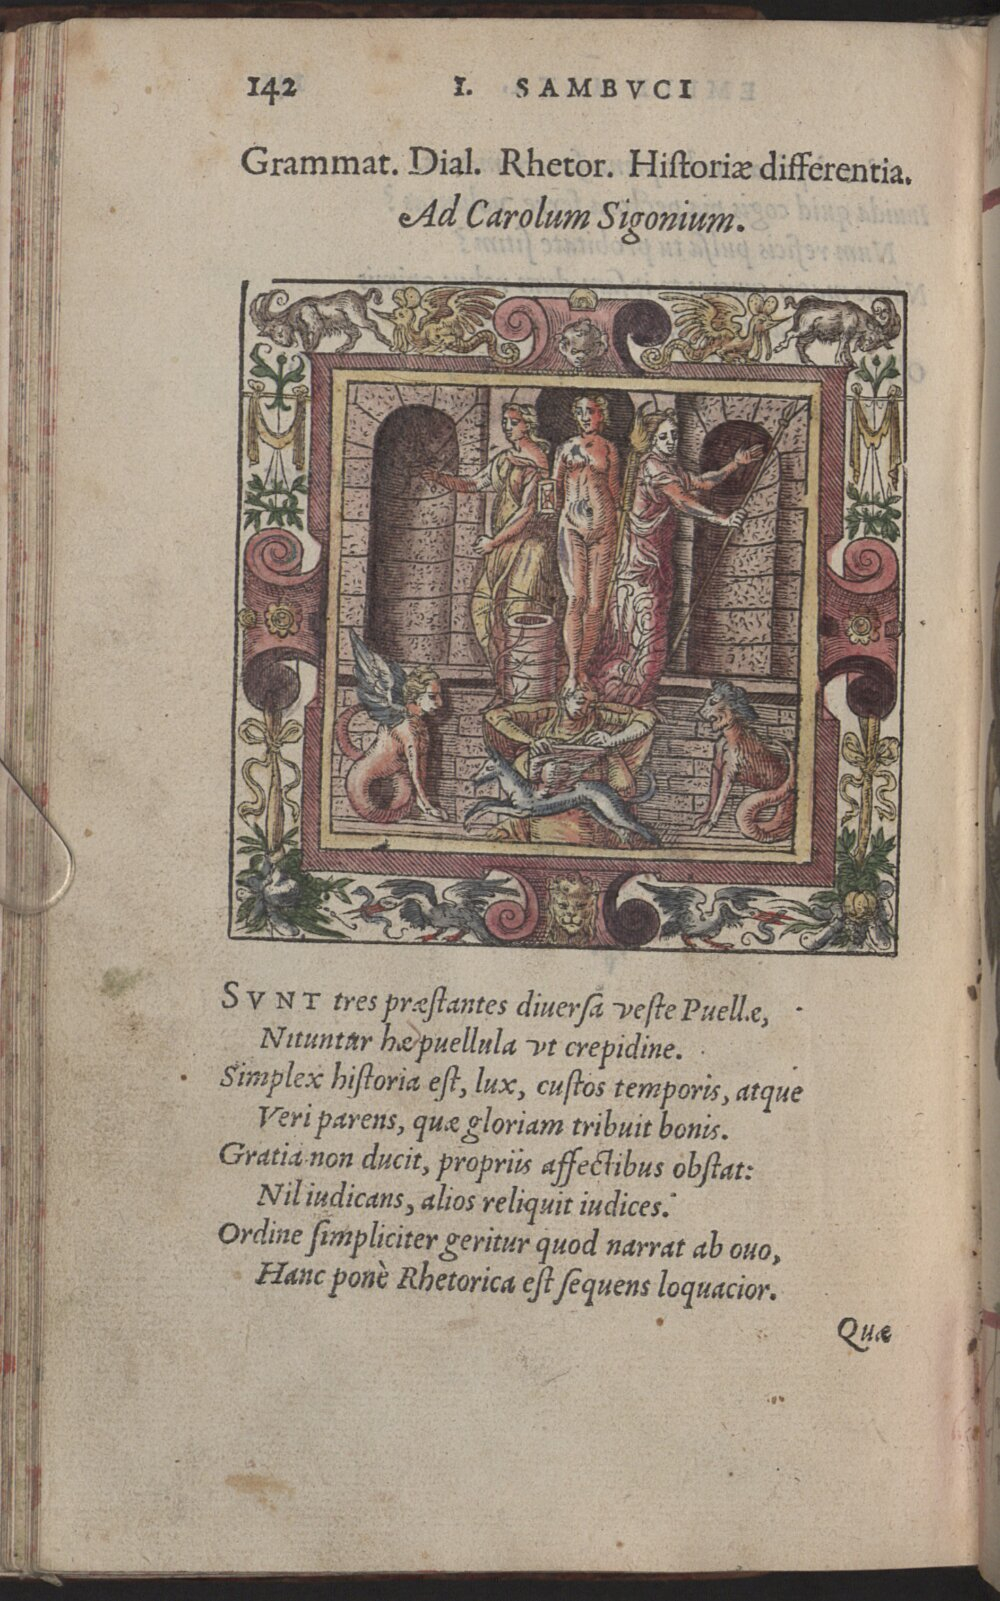 142 I. SAMBVCI
Grammat. Dial. Rhetor. Hiſtoriæ differentia.
Ad Carolum Sigonium.
SVNT tres præſtantes diuerſa veſte Puellæ,
Nituntur hæ puellula vt crepidine.
Simplex hiſtoria eſt, lux, cuſtos temporis, atque
Veri parens, quæ gloriam tribuit bonis.
Gratia non ducit, propriis affectibus obſtat:
Nil iudicans, alios reliquit iudices.
Ordine ſimpliciter geritur quod narrat ab ouo,
Hanc ponè Rhetorica eſt ſequens loquacior.
Quæ